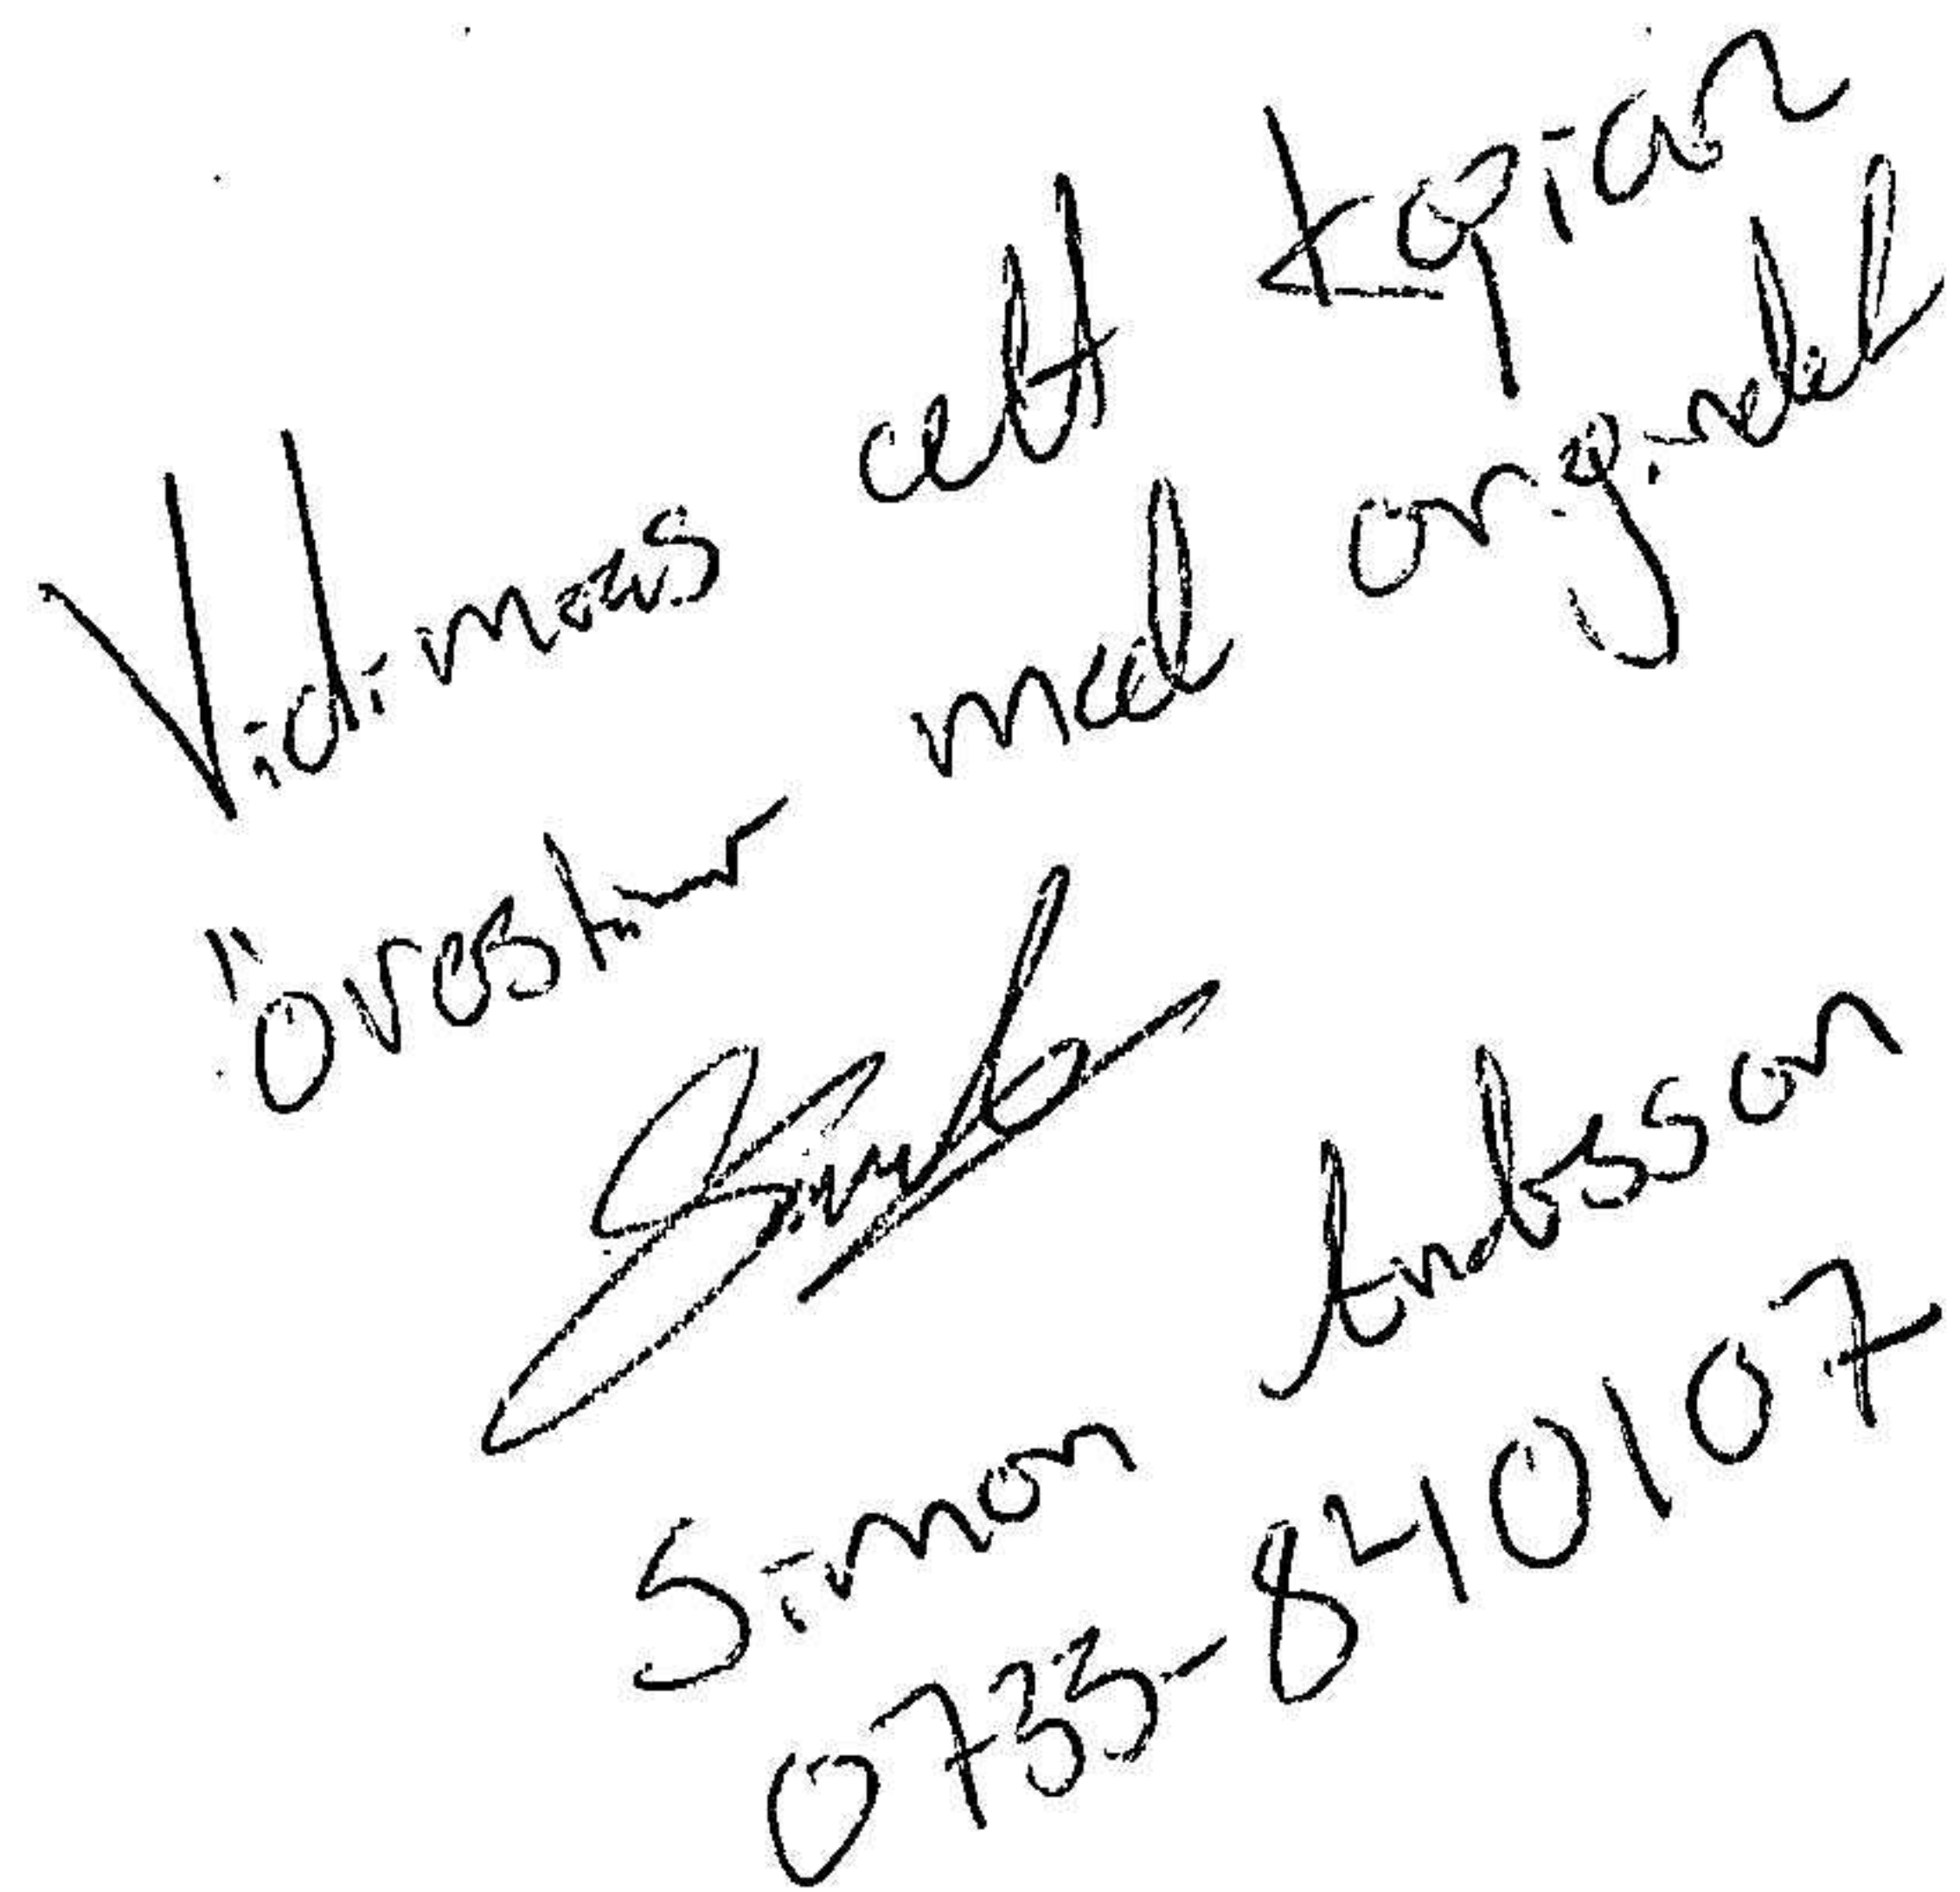 Vidimeras att kopian
överstämmer med orginalet
Simon
0733-840107